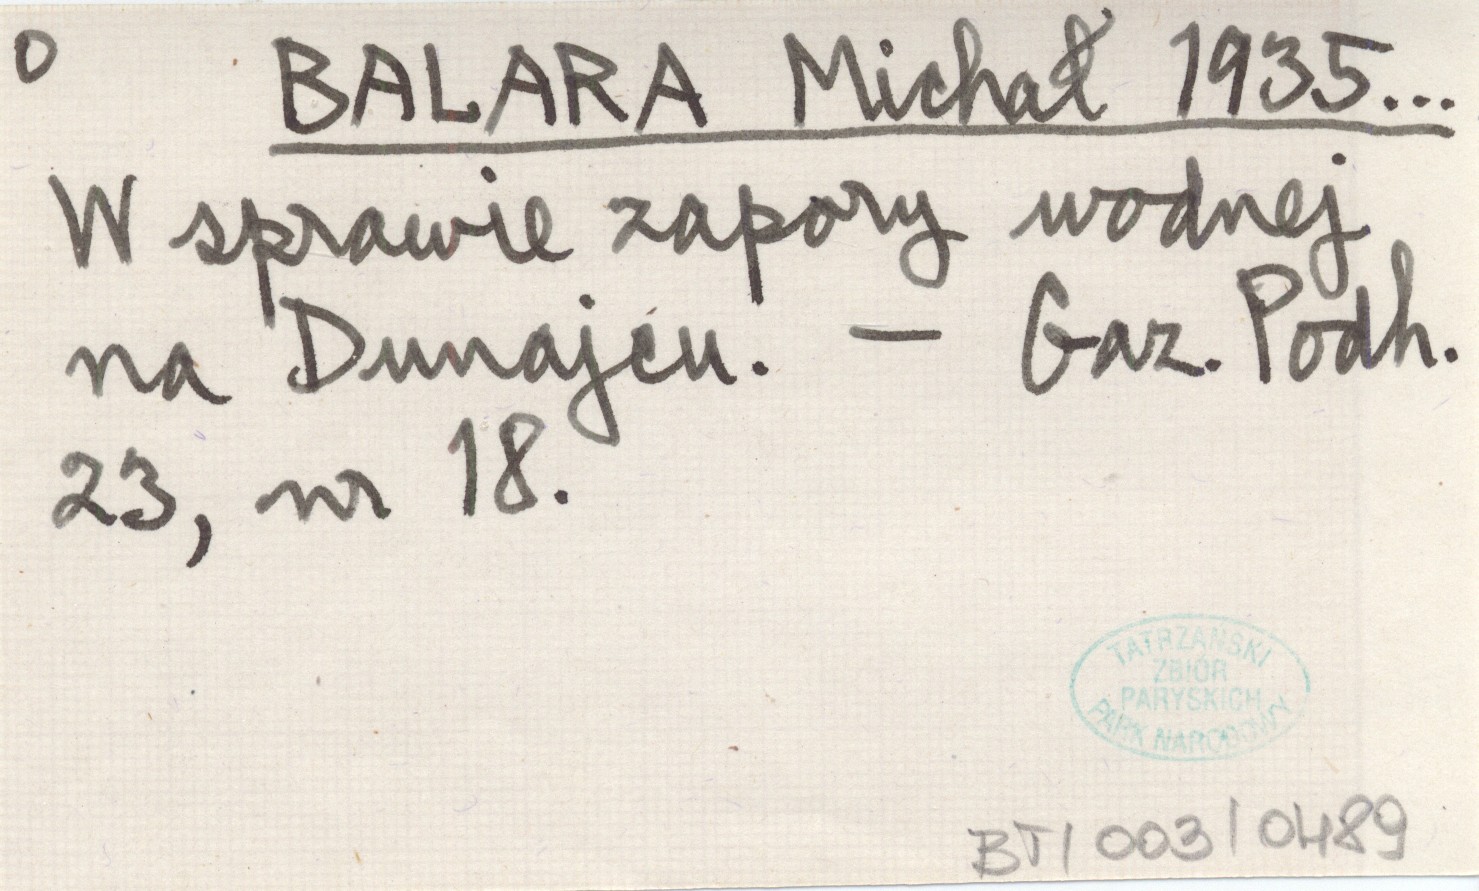 o BALARA Michał 1935...
W sprawie zapory wodnej
na Dunajcu. — Gaz. Podh.
23, nr 18.
TATRZAŃSKI
ZBIÓR
PARYSKICH
PARK NARODOWY
BT/003/0489